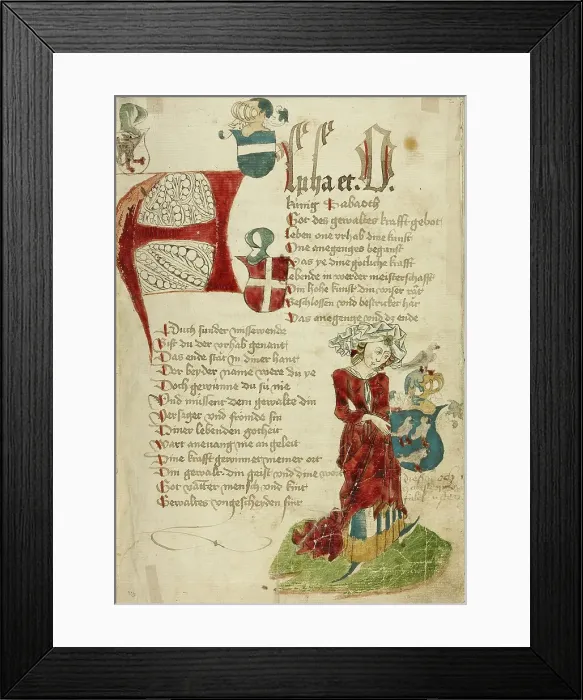 Alpha et O.
künig Sabaoth
Got des gewaltes krafft gebot
Leben one vrhab dine kunst
One aneganges begunst
Was ye dine götliche krafft
Lebende in werder meisterschafft
Din hohe kunst din wiser rät
Beschlossen vnd bestricket hät
Das anegenge vnd dz ende
Duch sunder missewende
Bist du der vrhab genant
Das ende stät in diner hant
Der beyder name were du ye
Doch gewunne du sü nie
Vnd müssent dem gewalte din
vnd frömde sin
Diner lebenden gotheit
Wart anevang nie an geleit
Dine krafft gewinnet niemer ort
Din gewalt din geist vnd dine wort
Got vatter mensch vnd kint
Gewaltes vngescheyden sint